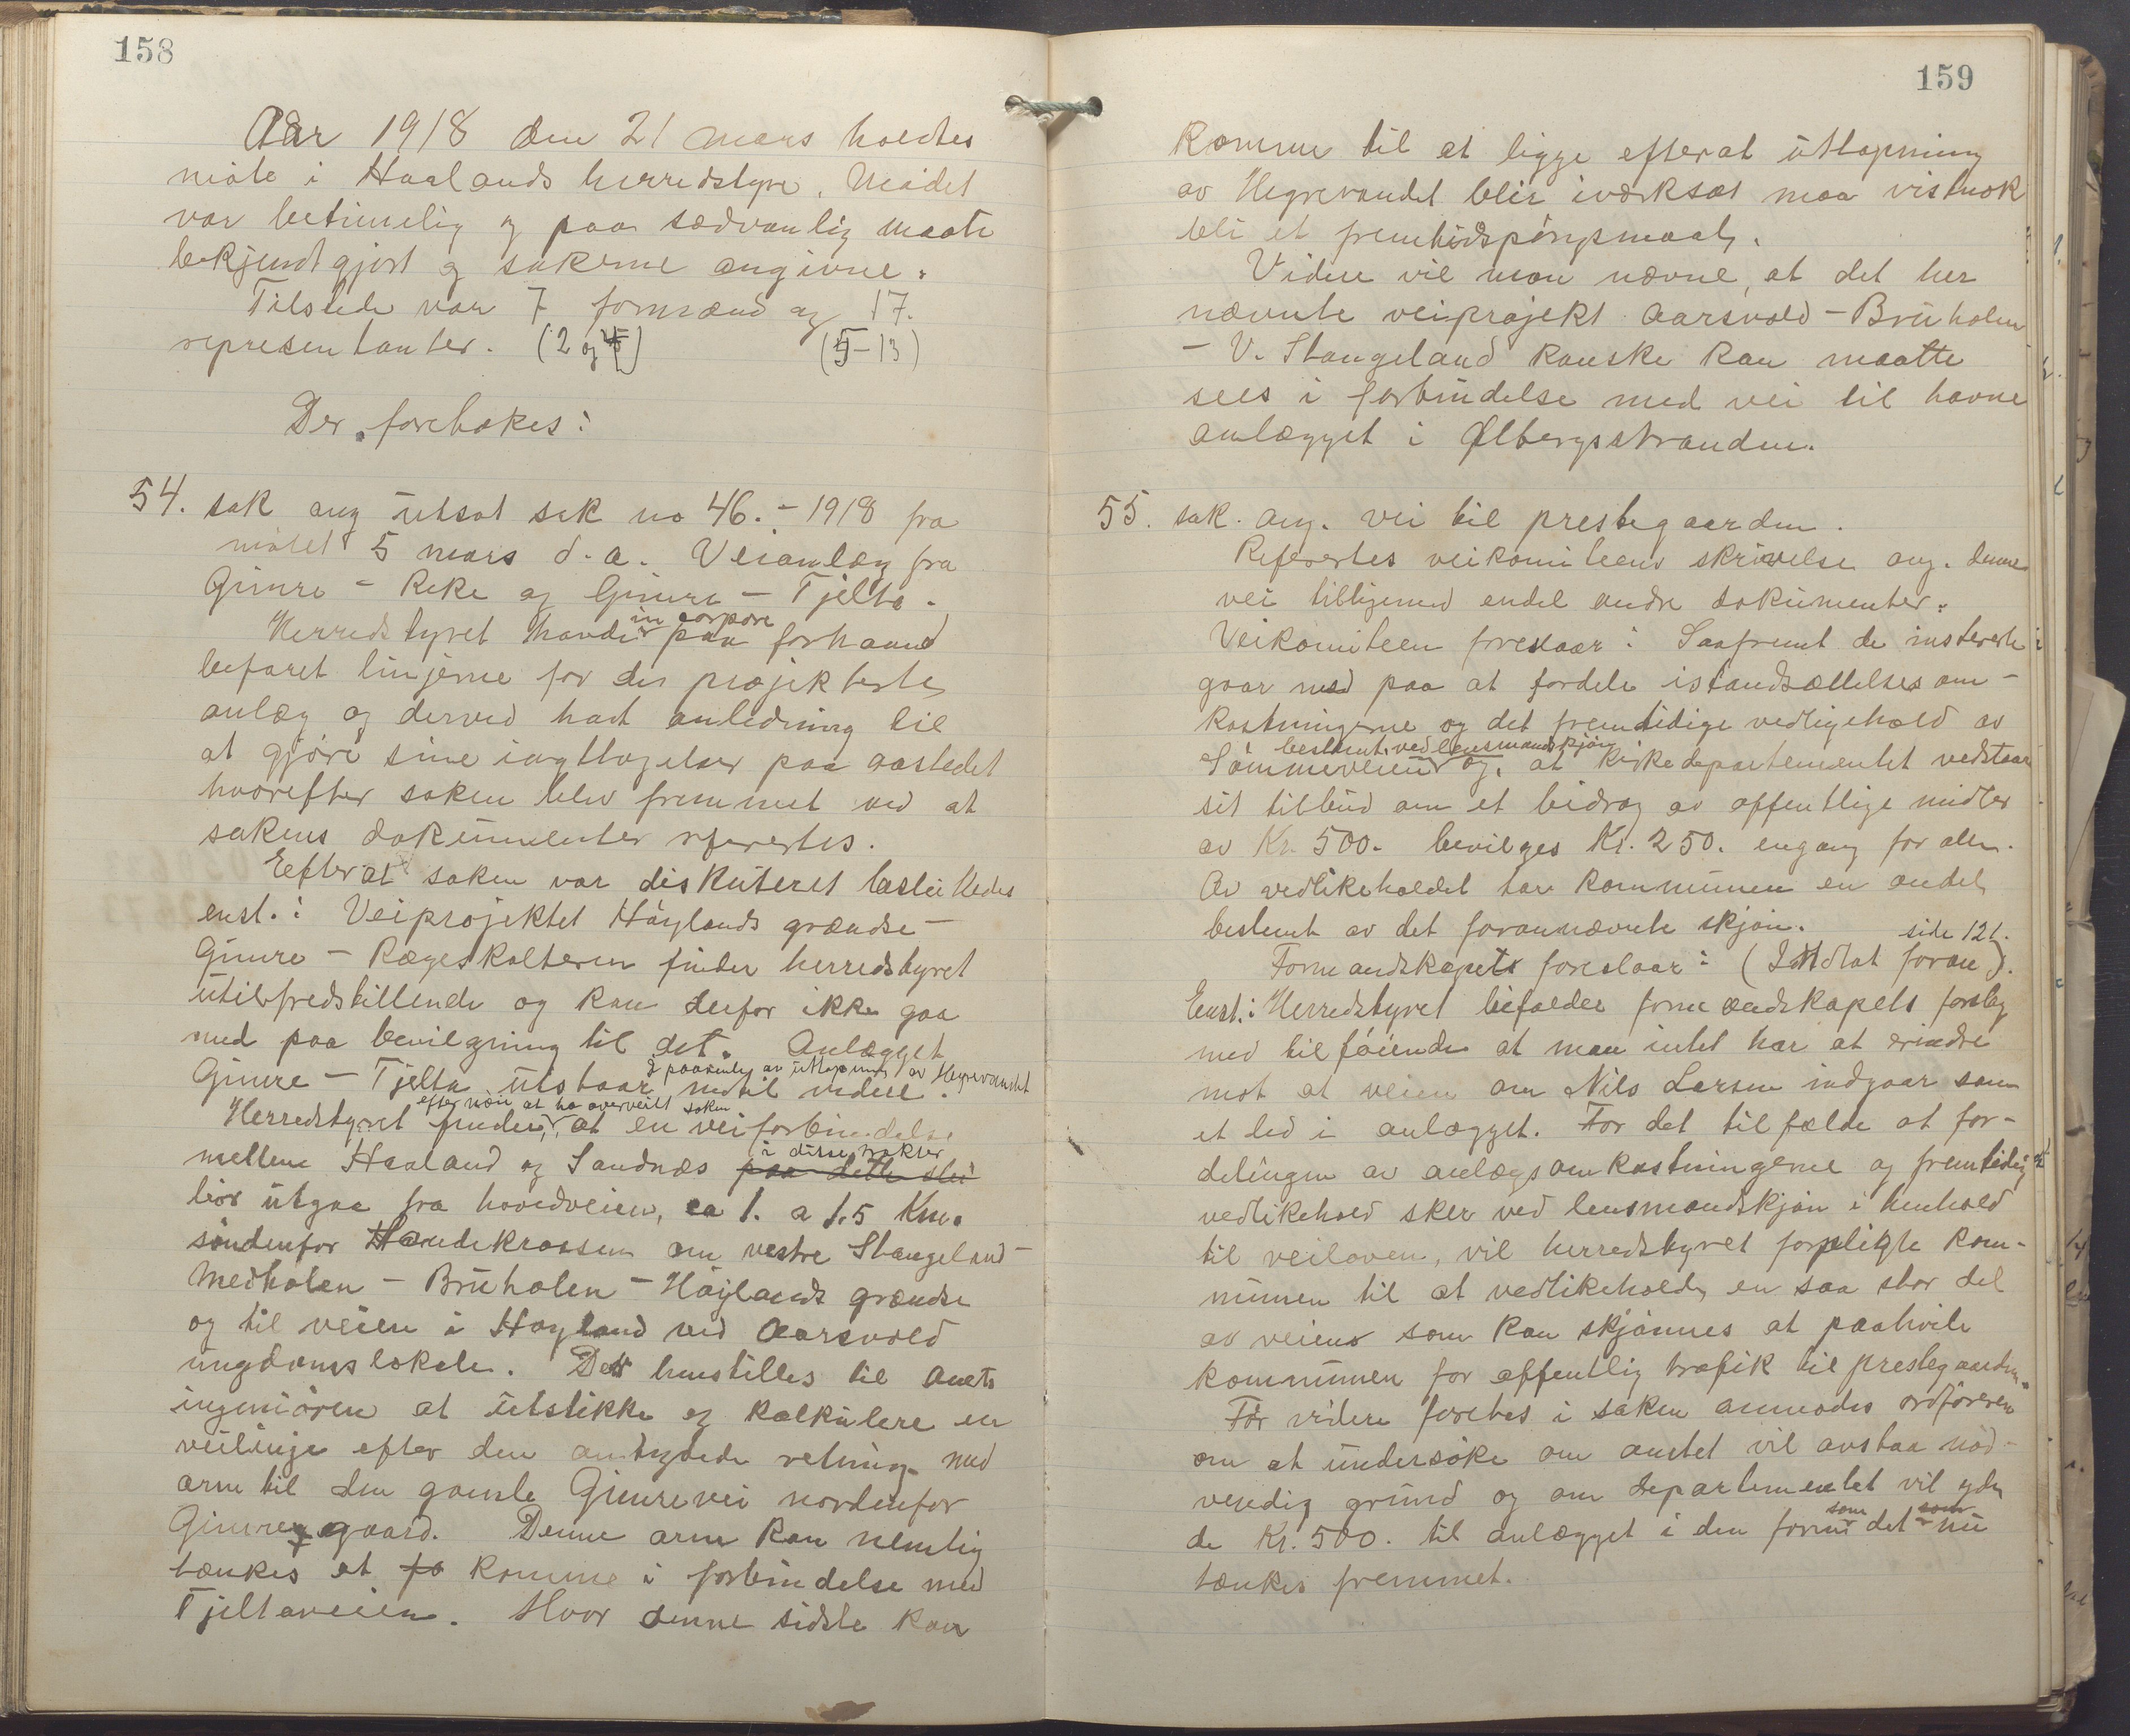 158
Aar 1918 den 21 mars holdtes
møte i Haalands herredstyre. Mødet
var betimelig og paa sædvanlig maate
bekjendtgjort og sakerne angivne.
Tilstede var 7 formænd og 17.
representanter. (2 og 4) (5-13)
Der foretokes:
54. sak ang utsat sak no 46.-1918 fra
møtet 5 mars d.a. Veianlæg fra
Gimre - Reke og Gimre - Tjelta.
Herredstyret havde in corpore paa forhaand
befaret linjerne for de projekterte
anlæg og derved hat anledning til
at gjøre sine iagttagelser paa aastedet
hvorefter saken blev fremmet ved at
sakens dokumenter refertes.
Efterat saken var diskuteret besluttedes
enst.: Veiprojektet Høylands grændse -
Gimre - Rægeskolteren finder herredstyret
utilfredstillende og kan derfor ikke gaa
med paa bevilgning til det. Anlægget
Gimre - Tjelta utstaar i paavente av uttapning av Hegrevandet indtil videre.
Herredstyret finder, efter nøie at ha overveiet saken at en veiforbindelse
mellem Haaland og Sandnæs paa dette sted i disse trakter
bør utgaa fra hovedveien, ca 1. a 1.5 Km.
søndenfor Handekrossen om vestre Stangeland -
Medholen - Bruholen - Høylands grændse
og til veien i Høyland ved Aarsvold
ungdomslokale. Det henstilles til amts
ingeniøren at utstikke og kalkulere en
veilinje efter den antydede retning med
arm til den gamle Gimrevei nordenfor
Gimre gaard. Denne arm kan nemlig
tænkes at fo komme i forbindelse med
Tjeltaveien. Hvor denne sidste kan
159
komme til at ligge efterat uttapning
av Hegrevandet blir iverksat maa vistnok
bli et fremtidspørgsmaal.
Videre vil man nævne, at det her
nævnte veiprojekt Aarsvold - Bruholen
- V. Stangeland kanske kan maatte
sees i forbindelse med vei til havne
anlægget i Ølbergsstranden.
55. sak. ang. vei til prestegaarden.
Refertes veikomiteens skrivelse ang. denne
vei tilligemed endel andre dokumenter.
Veikomiteen foreslaar: Saafremt de
gaar med paa at fordele istandsættelsesom-
kostningerne og det fremtidige vedligehold av
Sømmeveien bestemt ved lensmandskjøn og, at Kirkedepartementet vedstaar
sit tilbud om et bidrag av offentlige midler
av Kr. 500. bevilges Kr. 250. engang for alle.
Av vedlikeholdet tar kommunen en andel
bestemt av det forannævnte skjøn.
Formandskapets foreslaar: (Indtat foran side 121.).
Enst.: Herredstyret bifalder formandskapets forslag
med tilføiende at man intet har at erindre
mot at veien om Nils Larsen indgaar som
et led i anlægget. For det tilfælde at for-
delingen av anlægsomkostningerne og fremtidig
vedlikehold sker ved lensmandskjøn i henhold
til veiloven, vil herredstyret forpligte kom-
munen til at vedlikeholde en saa stor del
av veiens som kan skjønnes at paahvile
kommunen for offentlig trafik til prestegaarden.
Før videre foretas i saken anmodes ordføreren
om at undersøke om amtet vil avstaa nød-
vendig grund og om departementet vil yde
de Kr. 500. til anlægget i den form som det som nu
tænkes fremmet.